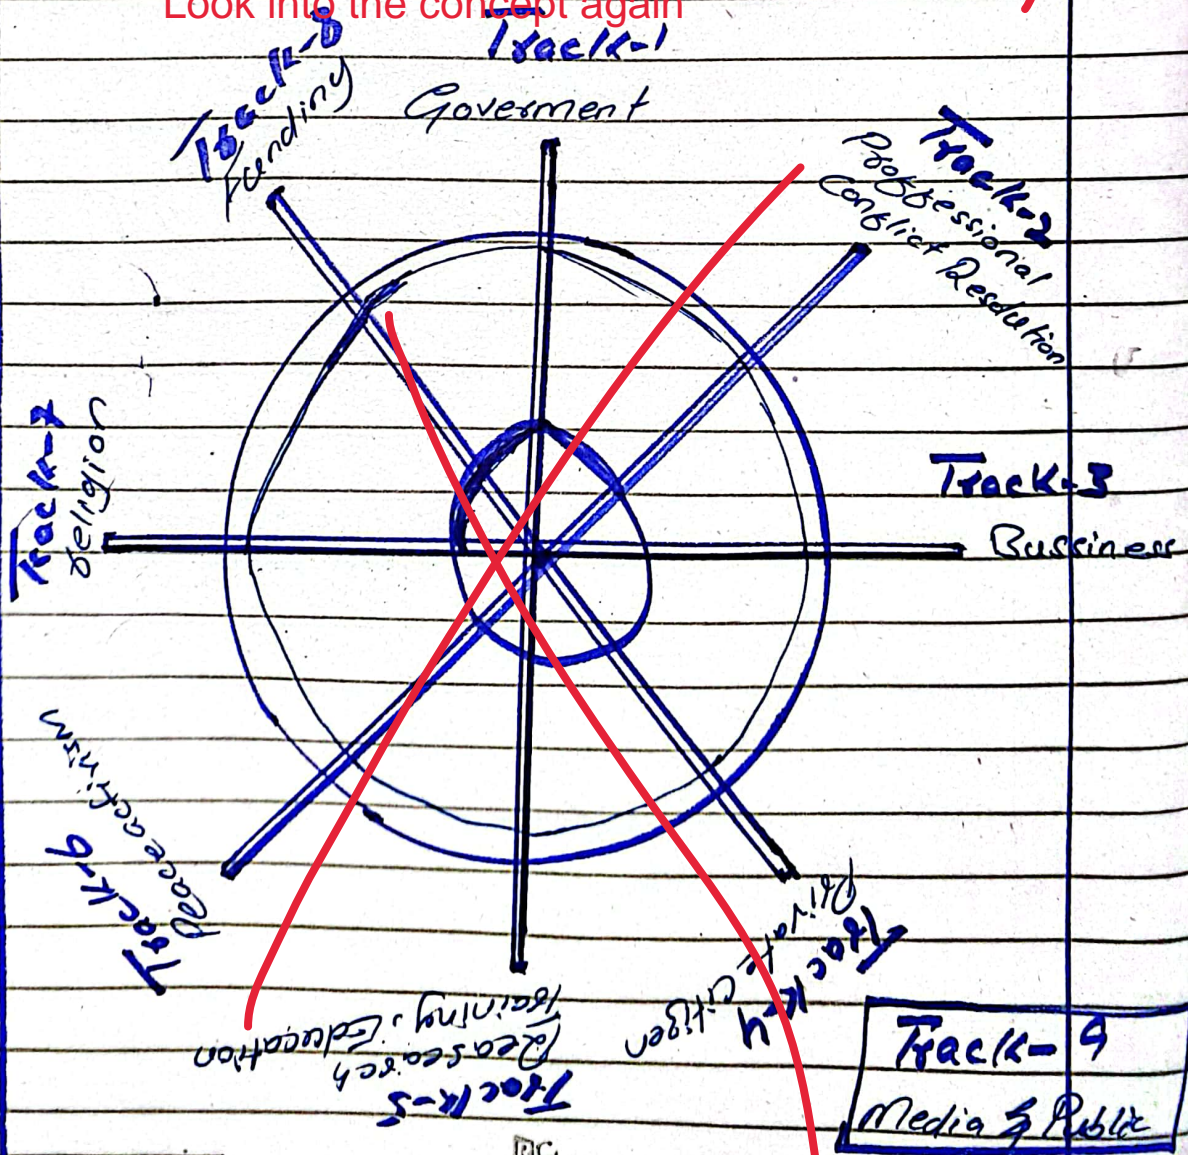 Look into the concept again
Track-1
Goverment
Track-2
Proffessional
Conflict Resolution
Track-3
Bussiness
Track-4
Private citizen
Track-5
Reasearch
Training, Education
Track-6
Peace activism
Track-7
Religion
Track-8
Funding
Track-9
Media & Public